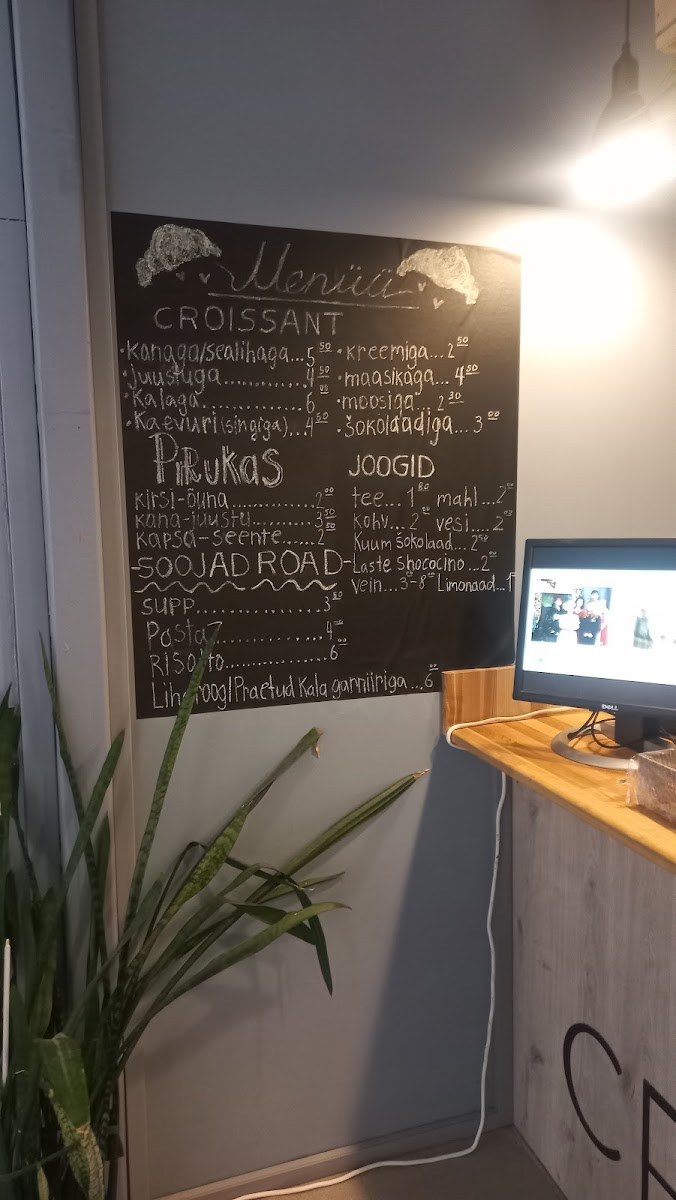 Menüü
CROISSANT
• Kanaga/sealihaga...5 50
• Juustuga............4 50
• Kalaga..............6 00
• Kaevuri (singiga)...4 50
• kreemiga...2 50
• maasikaga...4 50
• moosiga...2 30
• šokolaadiga...3 00
PiRUKAS
Kirsi-õuna..............2 00
kana-juustu...........3 50
kapsa-seente......2 50
SOOJAD ROAD
SUPP..................3 80
Pasta..............4
RISOTO..............6 00
Praetud Kala garniiriga...6 00
JOOGID
tee...1 80 mahl...2
kohv...2 vesi....2
Kuum šokolaad...2 50
Laste shococino...2
vein...3-8 Limonaad...1
DELL
CE